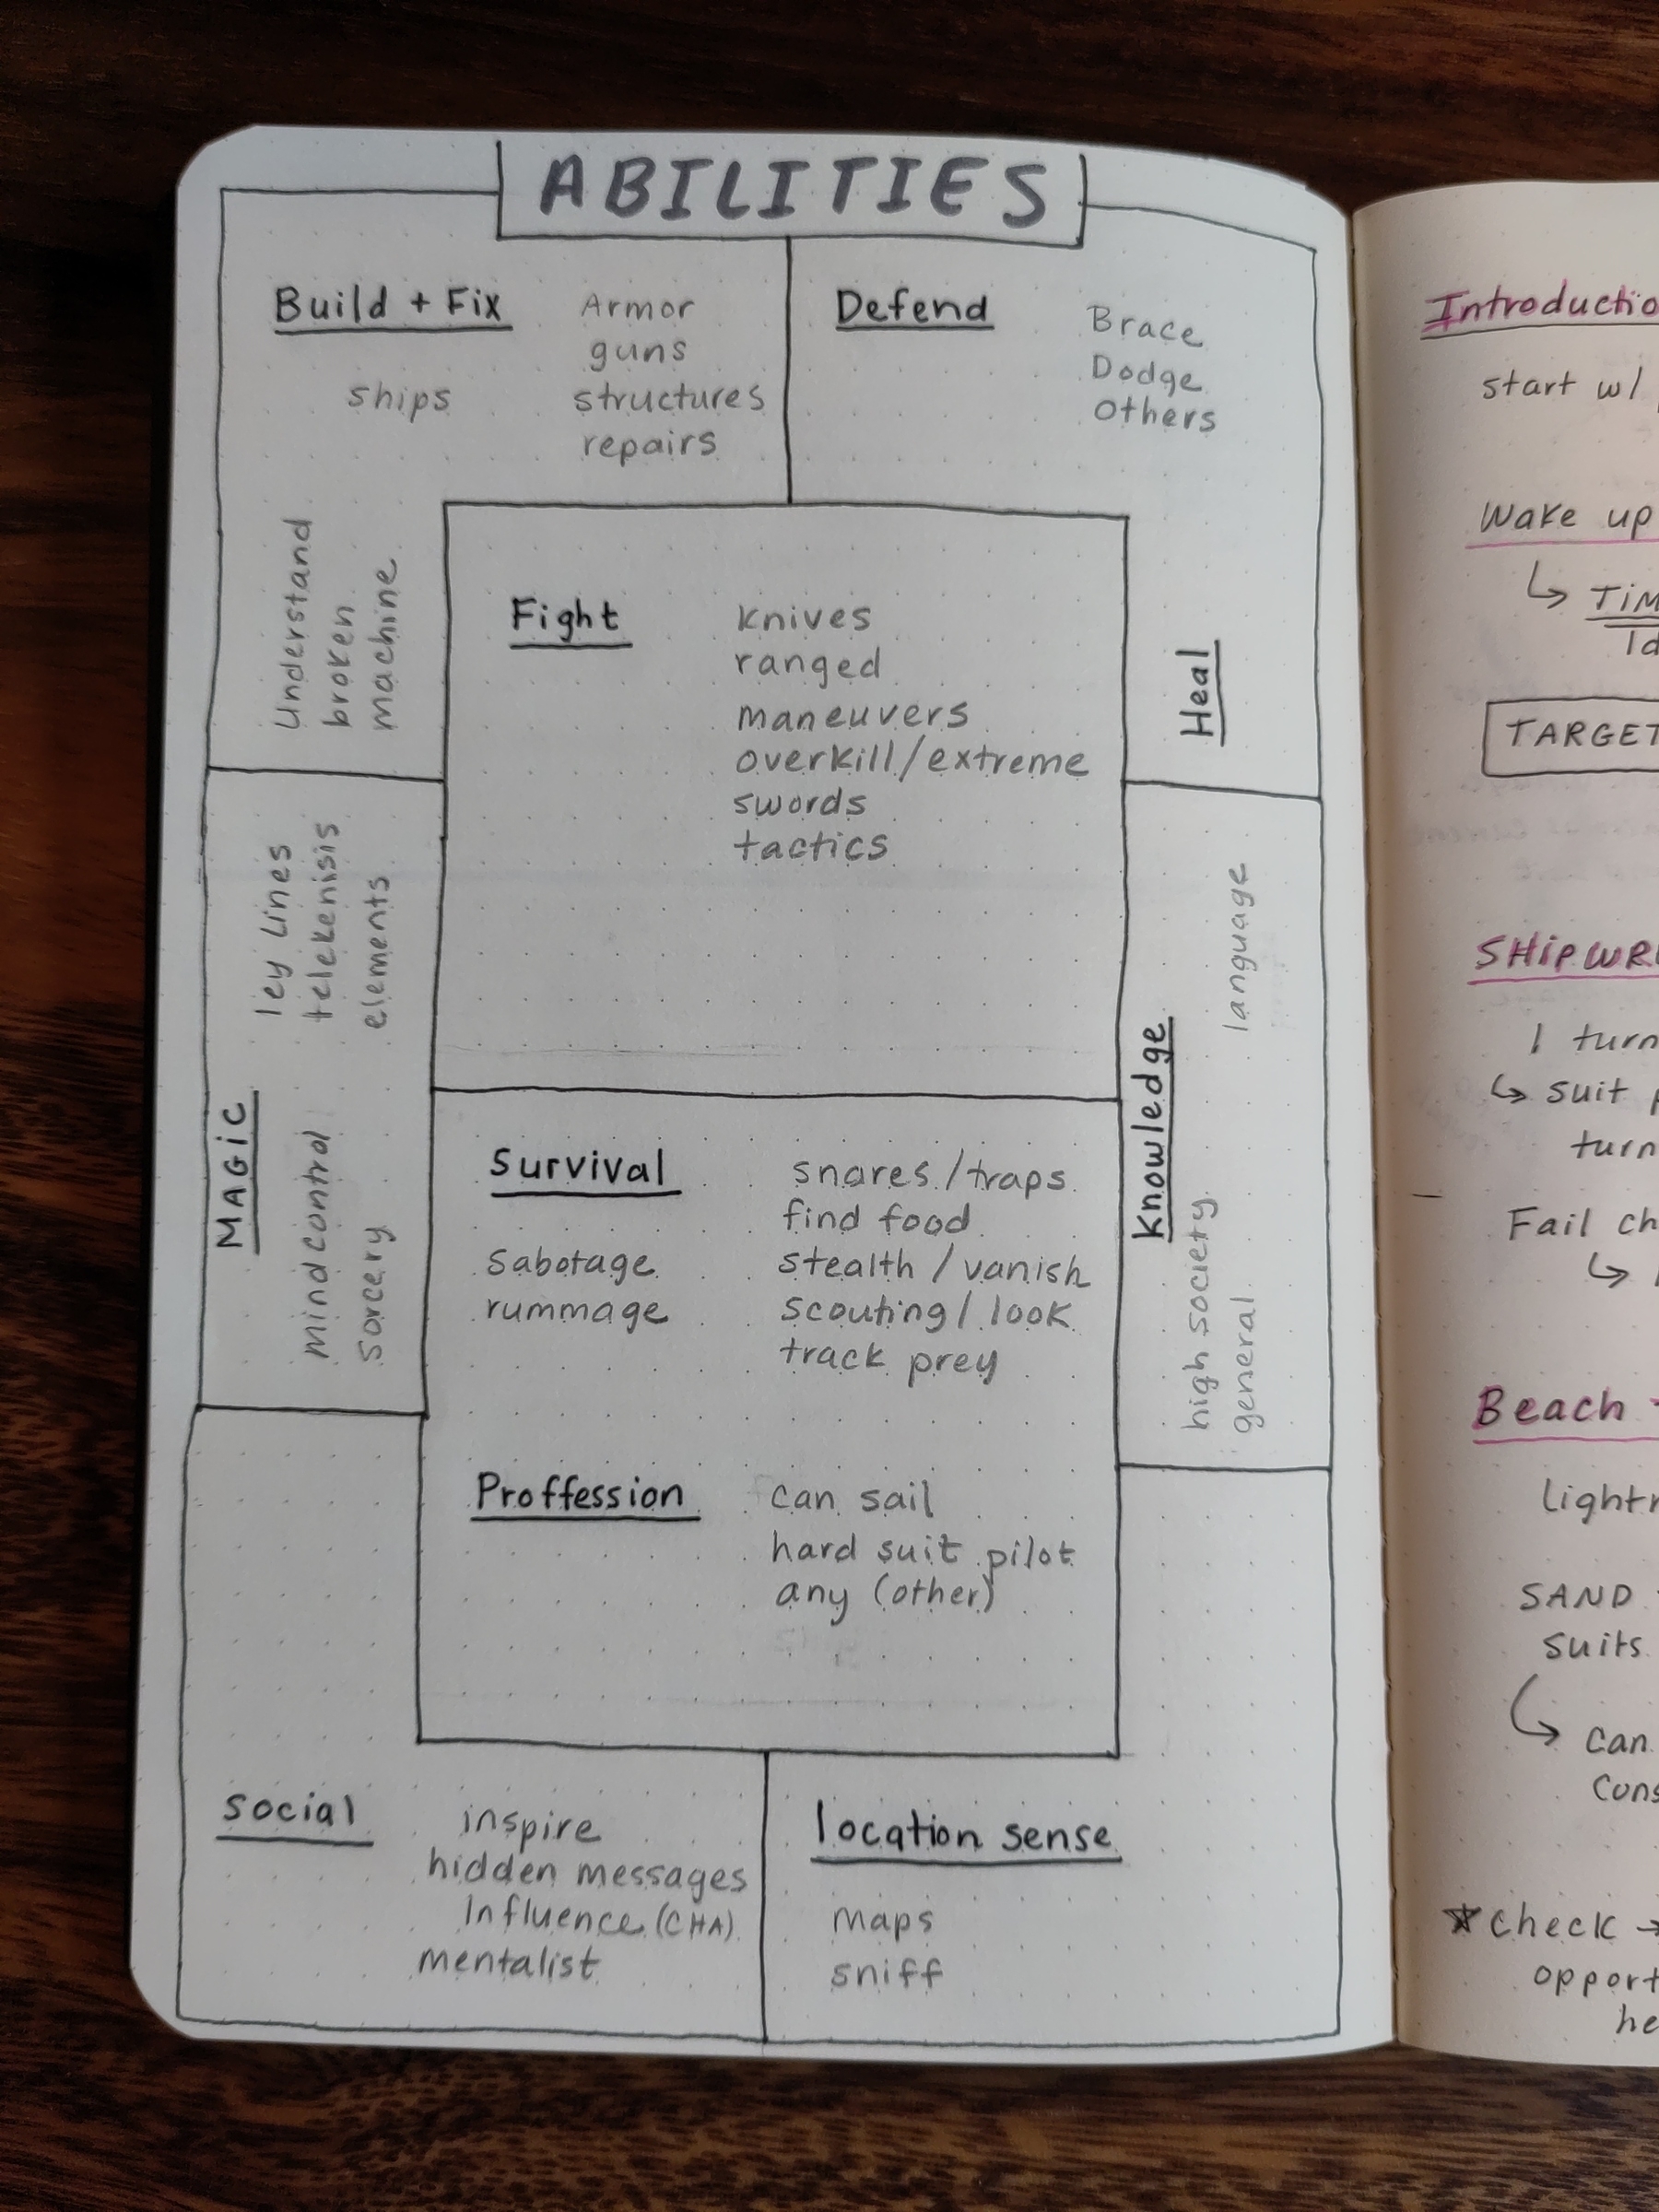 ABILITIES
Build + Fix
Armor
guns
ships
structures
repairs
Understand
broken
machine
Defend
Brace
Dodge
Others
Heal
Fight
knives
ranged
maneuvers
overkill/extreme
swords
tactics
MAGiC
ley lines
telekenisis
elements
mind control
sorcery
Knowledge
language
high society
general
Survival
snares/traps
find food
Sabotage
stealth / vanish
rummage
scouting/ look
track prey
Proffession
can sail
hard suit pilot
any (other)
social
inspire
hidden messages
Influence (CHA)
mentalist
location sense
maps
sniff
start w/
Wake up
TARGET
1 turn
↳ suit
turn
Fail
Beach
SAND
suits
can
☆ check →
he